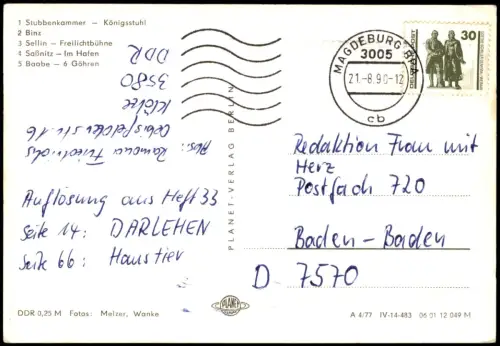 1 Stubbenkammer – Königsstuhl
2 Binz
3 Sellin – Freilichtbühne
4 Saßnitz – Im Hafen
5 Baabe – 6 Göhren
Abs: Ramona Friedrichs
Oebisfelder Str. 16
Klötze
3580
DDR
Auflösung aus Heft 33
Seite 14: DARLEHEN
Seite 66: Haustier
DDR 0,25 M Fotos: Melzer, Wanke
PLANET-VERLAG BERLIN
PLANET
MAGDEBURG BPA
3005
21.-8.90-12
cb
30
Redaktion Frau mit
Herz
Postfach 720
Baden-Baden
D-7570
A 4/77 IV-14-483 06 01 12 049 M